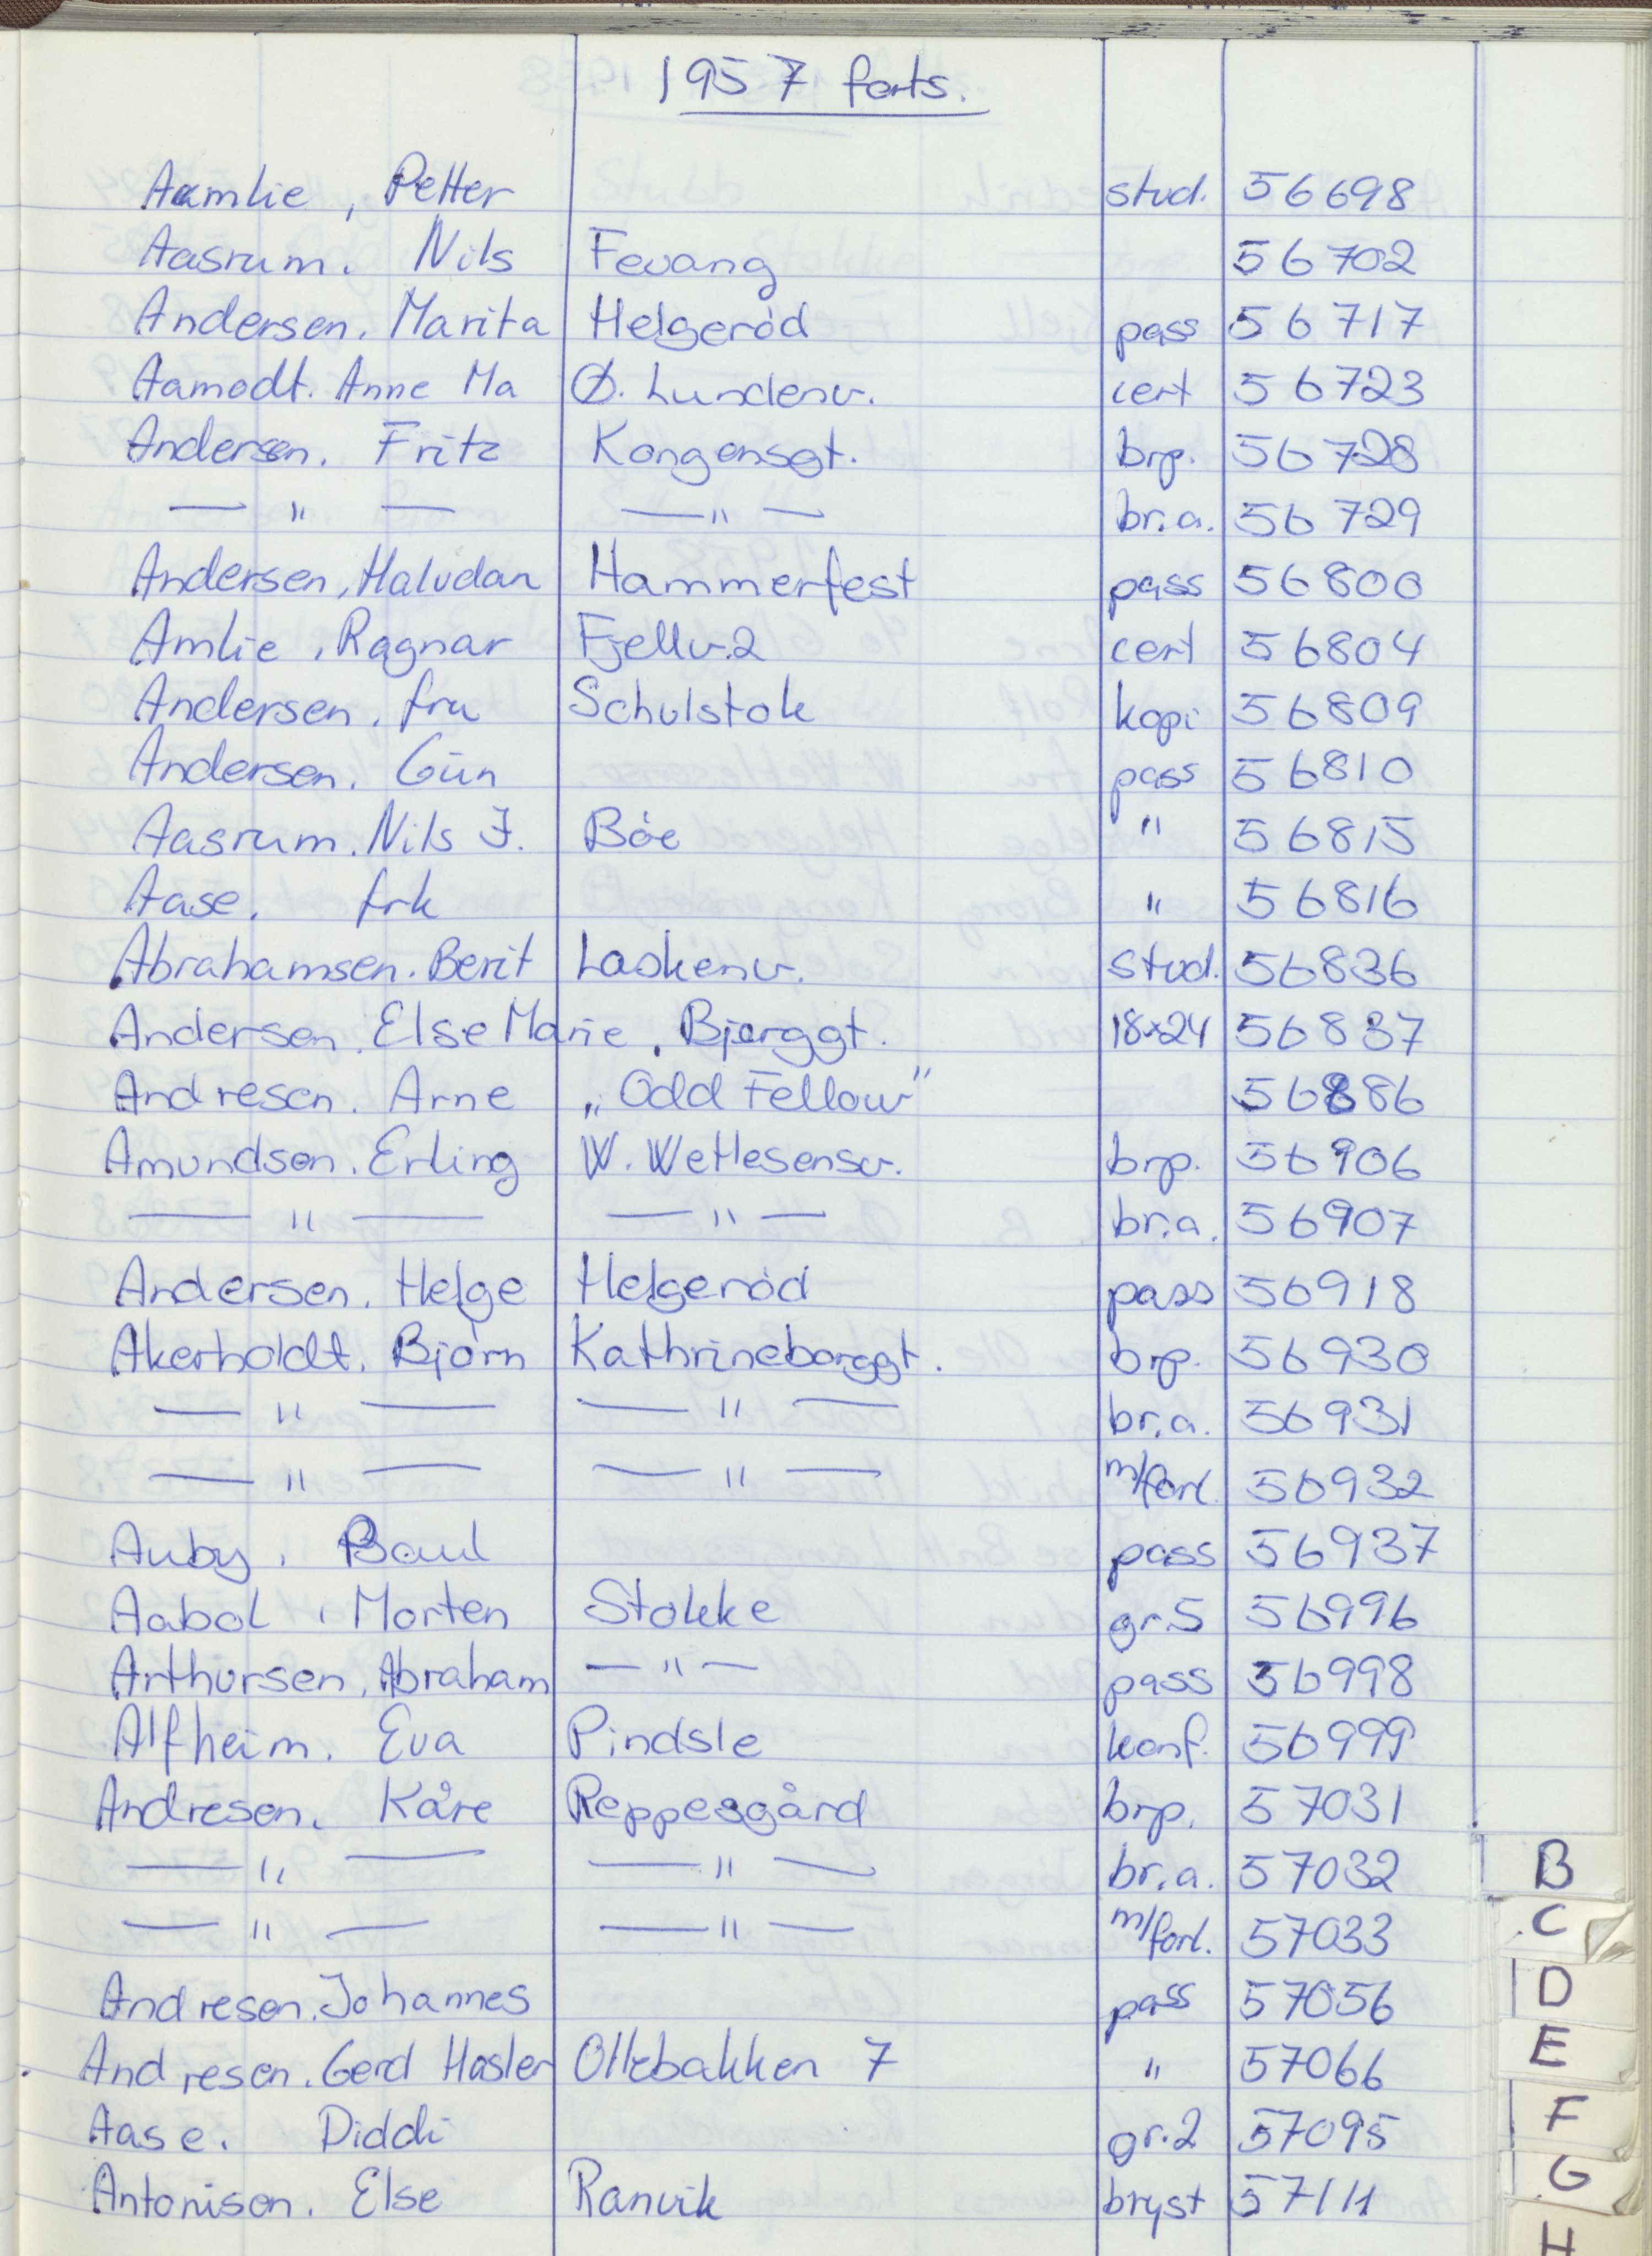 1957 forts.
Aamlie, Petter stud. 56698
Aasrum. Nils Fevang 56702
Andersen. Marita Helgerød pass 56717
Aamodt. Anne Ma Ø. Lundenv. cert 56723
Andersen. Fritz Kongensgt. brp. 56728
— " — — " — br.a. 56729
Andersen, Halvdan Hammerfest pass 56800
Amlie, Ragnar Fjellv.2 cert 56804
Andersen, fru Schulstok kopi 56809
Andersen. Gün pass 56810
Aasrum. Nils J. Bøe " 56815
Aase. frk " 56816
Abrahamsen. Berit Laskenv. stud. 56836
Andersen. Else Marie. Bjerggt. 18x24 56837
Andresen. Arne „Odd Fellow" 56886
Amundsen. Erling W. Wetlesensv. brp. 56906
— " — — " — br.a. 56907
Andersen. Helge Helgerød pass 56918
Akerholdt. Bjørn Kathrineborggt. brp. 56930
— " — — " — br.a. 56931
— " — — " — m/forl. 56932
Auby, Paul pass 56937
Aabol, Morten Stokke gr.5 56996
Arthursen, Abraham — " — pass 56998
Alfheim. Eva Pindsle konf. 56999
Andresen. Kåre Reppesgård brp. 57031
— " — — " — br.a. 57032
— " — — " — m/forl. 57033
Andresen. Johannes pass 57056
Andresen. Gerd Hasler Ollebakken 7 " 57066
Aase. Diddi gr.2 57095
Antonisen. Else Ranvik bryst 57111
B
C
D
E
F
G
H